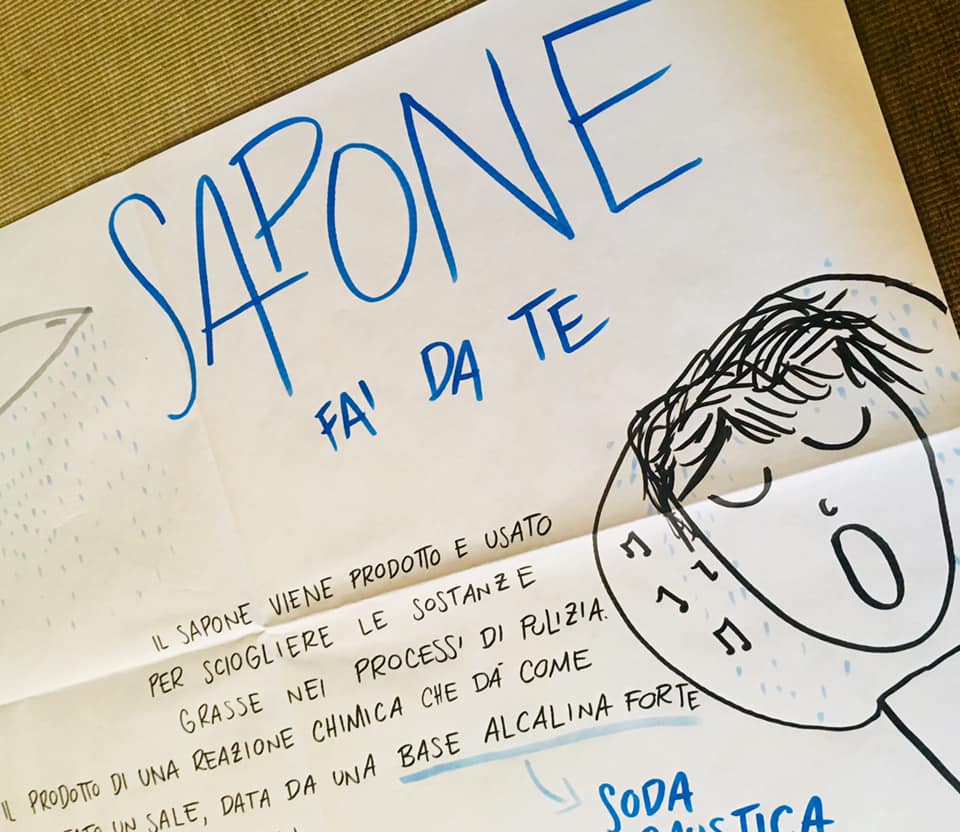 SAPONE
FAI DA TE
IL SAPONE VIENE PRODOTTO E USATO
PER SCIOGLIERE LE SOSTANZE
GRASSE NEI PROCESSI DI PULIZIA.
IL PRODOTTO DI UNA REAZIONE CHIMICA CHE DÁ COME
UN SALE, DATA DA UNA BASE ALCALINA FORTE
SODA